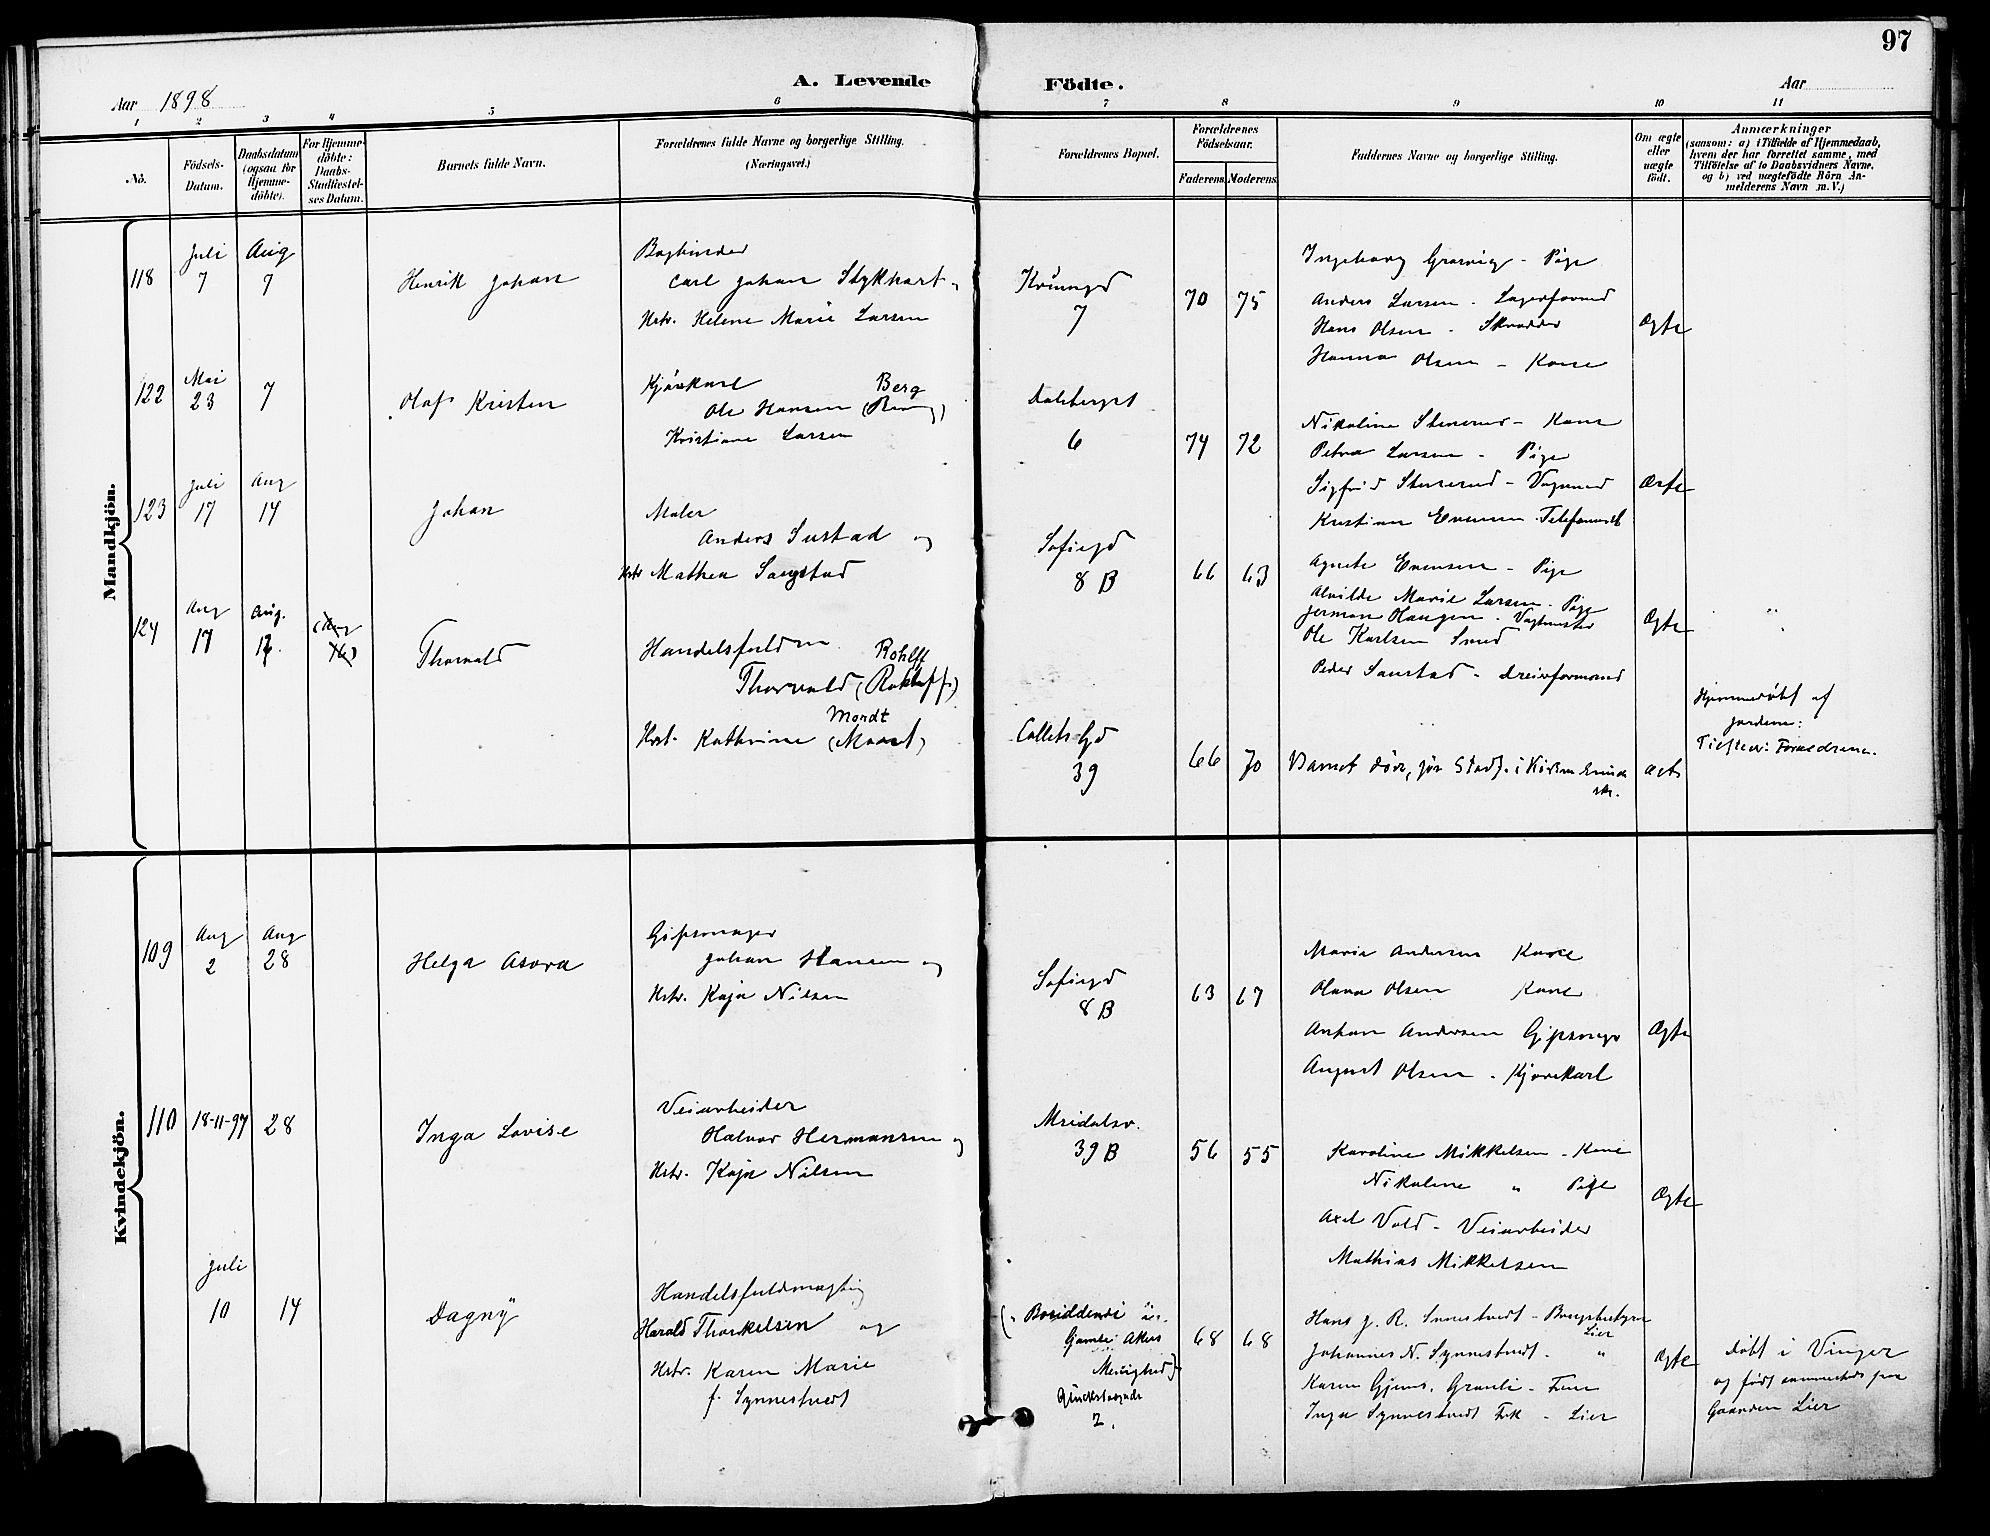 97
A. Levende Födte.
Aar 1898
Aar
1 2 3 4 5 6 7 8 9 10 11
No.
Födsels-Datum.
Daabsdatum (ogsaa for Hjemme-döbte).
For Hjemme-döbte: Daabs-Stadfæstel-ses Datum.
Barnets fulde Navn.
Forældrenes fulde Navne og borgerlige Stilling. (Næringsvei.)
Forældrenes Bopæl.
Forældrenes Födselsaar.
Faderens. Moderens.
Faddernes Navne og borgerlige Stilling.
Om ægte eller uægte födt.
Anmærkninger
(saasom: a) i Tilfælde af Hjemmedaab,
hvem der har forrettet samme, med
Tilföielse af to Daabsvidners Navne.
og b) ved uægtefödte Börn An-
melderens Navn m. V.)
Mandkjön.
118
Juli 7
Aug 7
Henrik Johan
Bogbinder
Carl Johan
Hstr. Helene Marie Larsen
7
70 75
Ingeborg - Pige
Anders Larsen -
Hans Olsen - Skrædder
Hanna Olsen - Kone
Ægte
122
Mai 23
7
Olaf Kristen
Kjørekarl
Ole Hansen Berg
Kristiane Larsen
6
74 72
Nikoline Stenerud - Kone
Petra Larsen - Pige
Sigfrid Stenerud -
Kristian Evensen -
Ægte
123
Juli 17
Aug 14
Johan
Maler
Anders Sustad og
Hstr Mathea Sangstad
Sofiegd
8 B
66 63
Agnete Evensen - Pige
Alvilde Marie Larsen - Pige
Herman Haugen - Vagtmester
Ole Karlsen Smed
Peder Sanstad -
Ægte
"
124
Aug 17
Aug.
Thorvald
Handelsfuldm
Rohlff
Thorvald
Mordt
Hst. Kathrine
Collets Gd
39
66 70
Barnet døde, før Stadf. i Kirken
Ægte
Hjemmedøbt af
Jordem:
Kvindekjön.
109
Aug 2
Aug 28
Helga Asora
Gipsmager
Johan Hansen og
Hstr. Kaja Nilsen
Sofiegd
8 B
63 67
Marie Andersen Kone
Olava Olsen Kone
Anton Andersen Gipsmgr
August Olsen - Kjørekarl
Ægte
110
18-11-97
28
Inga Lovise
Veiarbeider
Halvor Hermansen og
Hstr. Kaja Nilsen
Maridalsv.
39 B
56 55
Karoline Mikkelsen - Kone
Nikoline " Pige
Axel Vold - Veiarbeider
Mathias Mikkelsen
Ægte
Juli
10
14
Dagny
Handelsfuldmægtig
Harald Thorkelsen og
Hstr. Karen Marie
f. Synnestvedt
Gamle Akers
Menighed)
2.
68 68
Hans J. R. Synnestvedt -
Lier
Johannes N. Synnestvedt - "
Karen
Inga Synnestvedt Frk - Lier
Ægte
Døbt i Vinger
og født sammesteds paa
Gaarden Lier